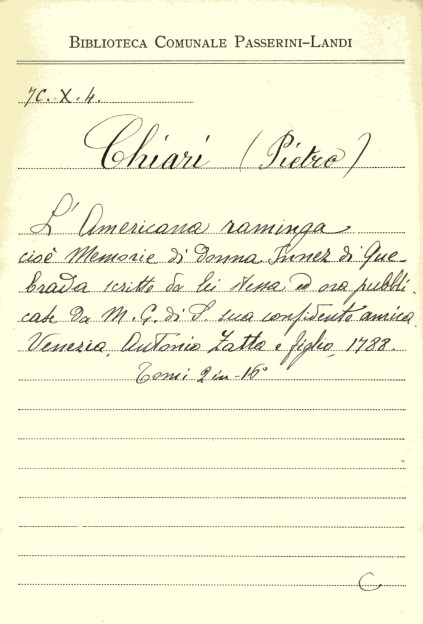 BIBLIOTECA COMUNALE PASSERINI-LANDI
7C. X. 4.
Chiari (Pietro)
L'Americana raminga
cioè Memorie di Donna Innez di Que-
brada scritte da lei stessa ed ora pubbli-
cate da M. G. di S. sua confidente amica.
Venezia, Antonio Zatta e figlio, 1788.
Tomi 2 in-16°
C